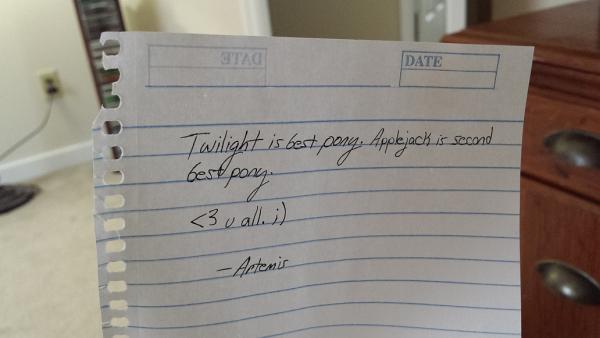 DATE
DATE
Twilight is best pony. Applejack is second
best pony.
<3 u all. ;)
- Artemis